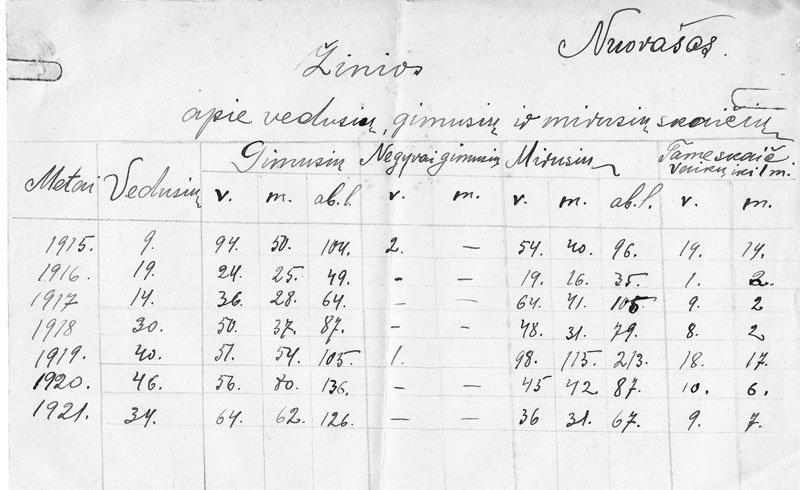 Nuorašas.
Žinios
apie vedusių, gimusių ir mirusių skaičių
Metai Vedusių Gimusių Negyvai gimusių Mirusių Tame skaič. vaikų iki 1 m.
v. m. ab. l. v. m. v. m. ab. l. v. m.
1915. 9. 94. 50. 104. 2. — 54. 40. 96. 19. 14.
1916. 19. 24. 25. 49. - — 19. 16. 35. 1. 2.
1917 14. 36. 28. 64. - — 64. 41. 105 9. 2
1918 30. 50. 37. 87. - — 48. 31. 79. 8. 2
1919. 40. 51. 54. 105. 1. 98. 115. 213. 18. 17.
1920. 46. 56. 80. 136. — — 45 42 87. 10. 6.
1921. 34. 64. 62. 126. — — 36 31. 67. 9. 7.